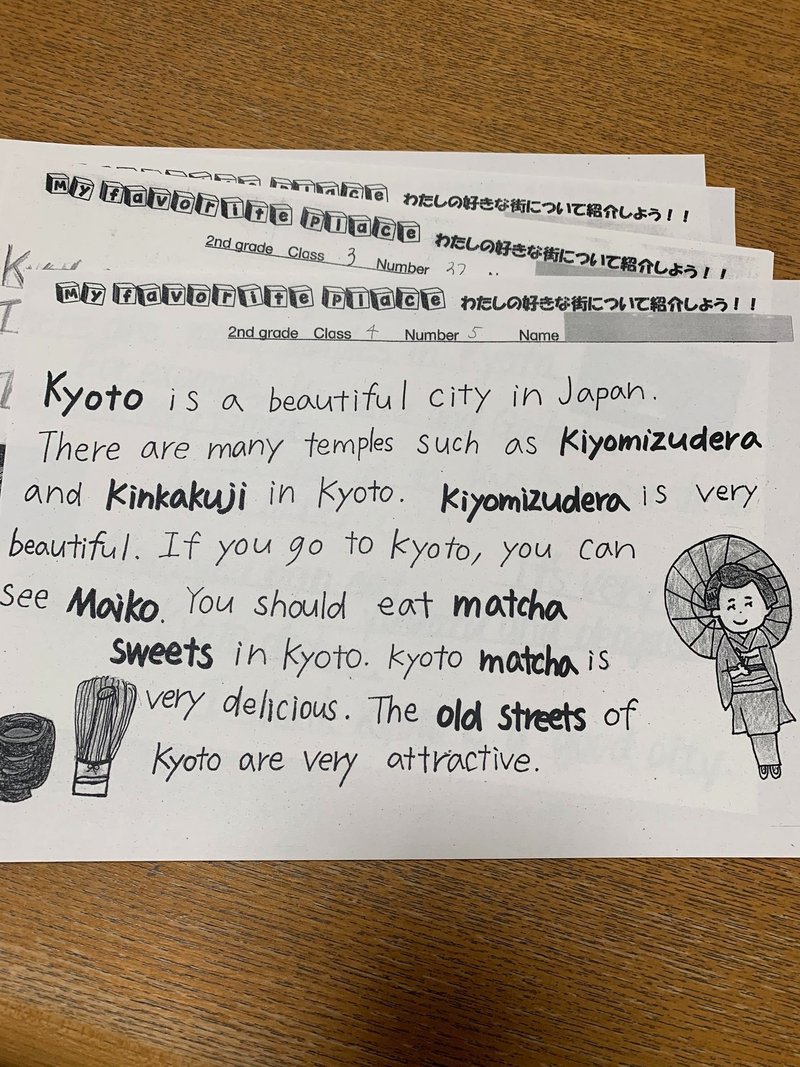 place
わたしの好きな街について紹介しよう！！
My favorite place
わたしの好きな街について紹介しよう！！
2nd grade Class 3 Number
My favorite place わたしの好きな街について紹介しよう！！
2nd grade Class 4 Number 5 Name
Kyoto is a beautiful city in Japan.
There are many temples such as Kiyomizudera
and Kinkakuji in Kyoto. Kiyomizudera is very
beautiful. If you go to Kyoto, you can
see Maiko. You should eat matcha
sweets in Kyoto. Kyoto matcha is
very delicious. The old streets of
Kyoto are very attractive.